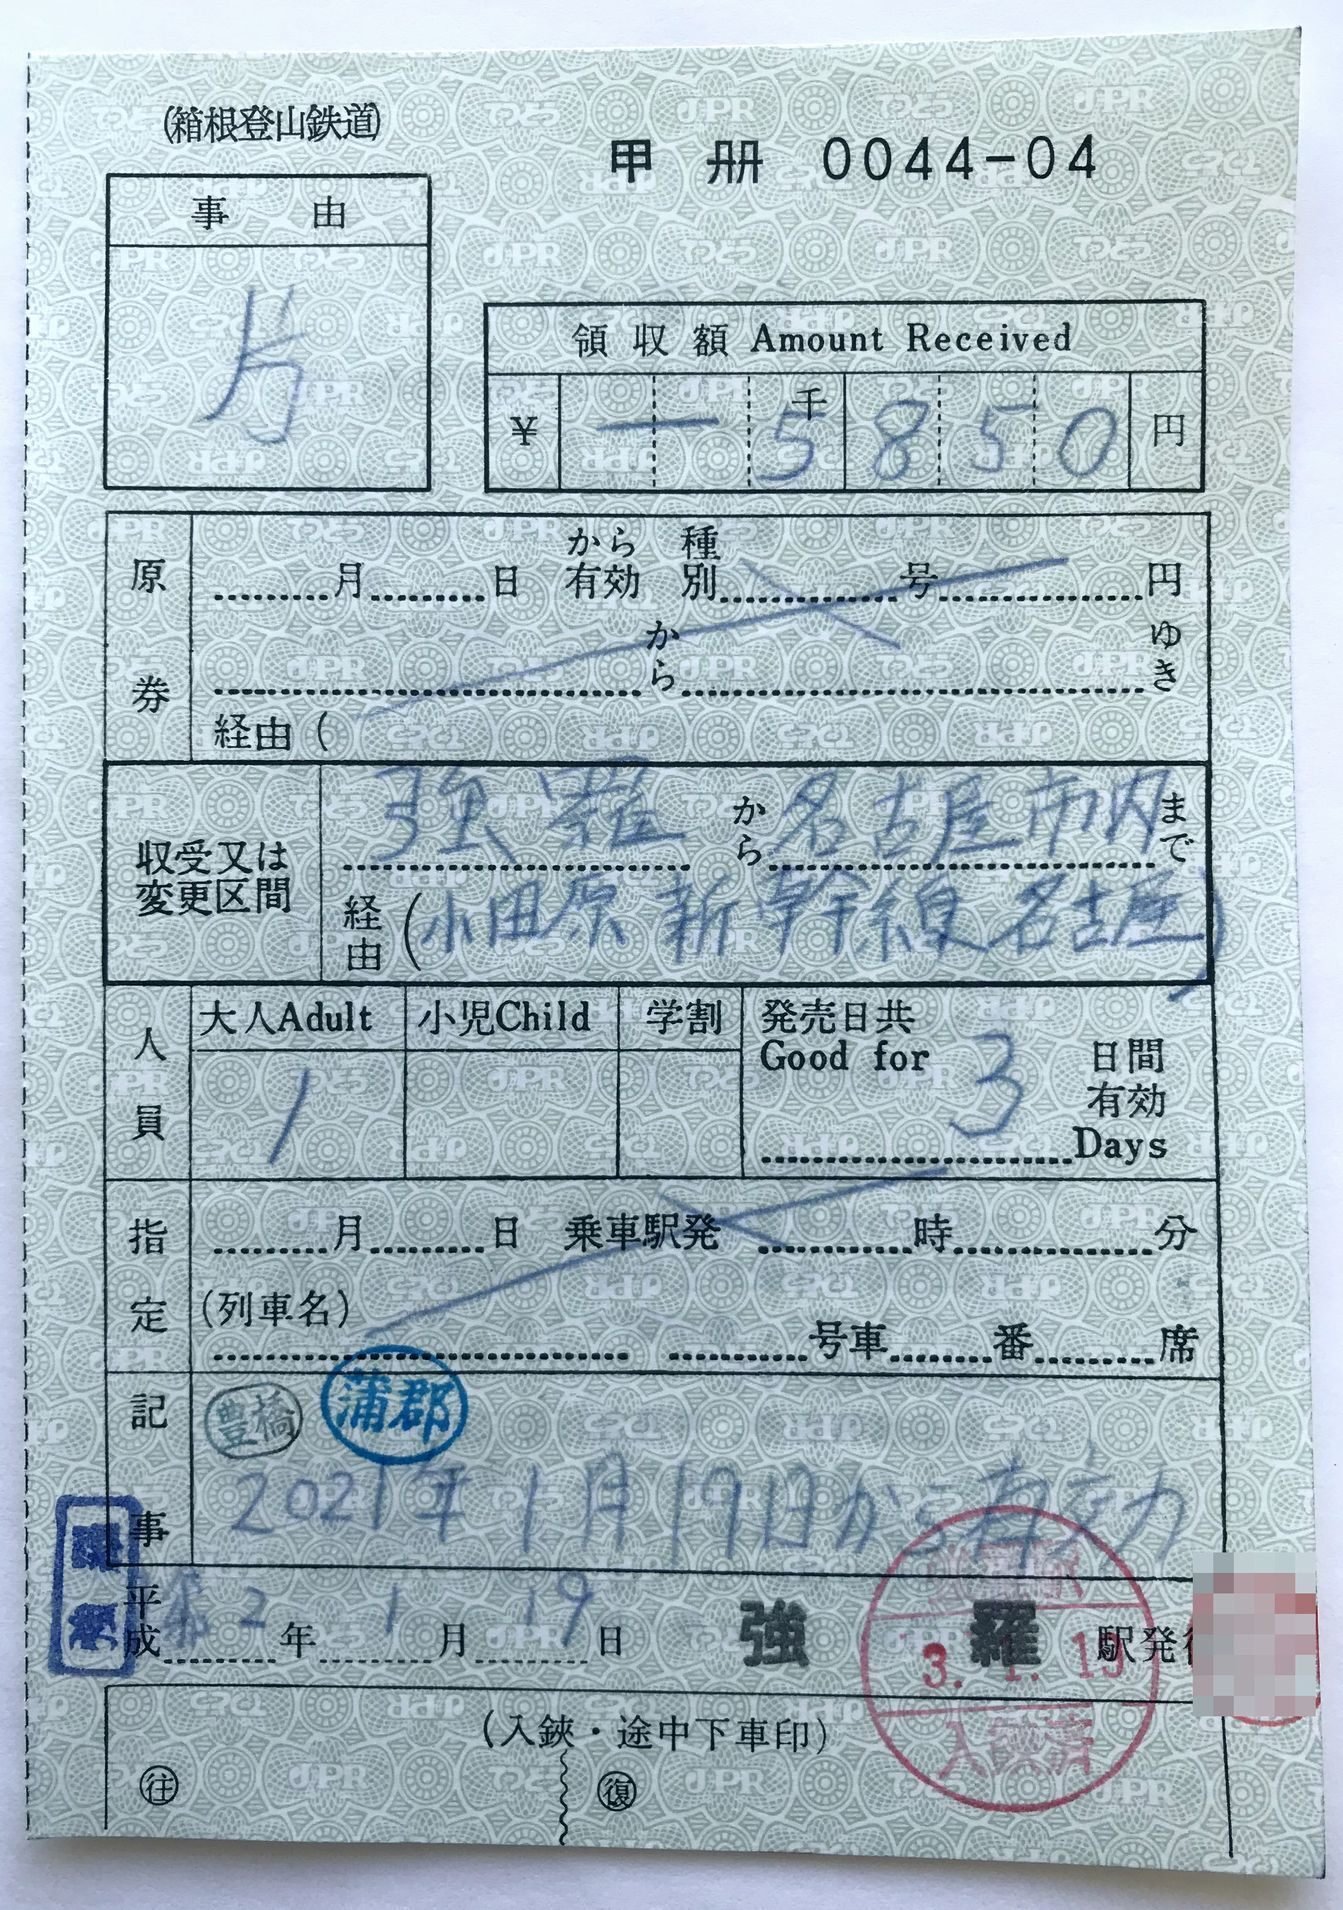 (箱根登山鉄道)
甲 册 0044-04
事由
片
領収額 Amount Received
¥ 一 千 5 8 5 0 円
原券
月 日 から有効 種別 号 円
から ゆき
経由 (
収受又は変更区間
強羅 から 名古屋市内 まで
経由 (小田原 新幹線 名古屋)
人員
大人Adult 小児Child 学割
1
発売日共 Good for 3 日間有効 Days
指定
月 日 乗車駅発 時 分
(列車名)
号車 番 席
記事
豊橋 蒲郡
2021年1月19日から有効
平成 2 年 1 月 19 日 強羅 駅発行
3. 1. 19
入鋏済
(入鋏・途中下車印)
往 復